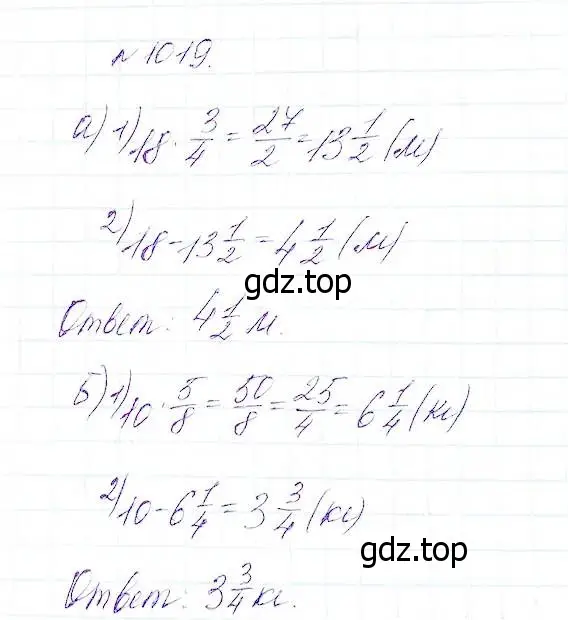 № 1019.
а) 1) 18 · 3/4 = 27/2 = 13 1/2 (м)
2) 18 - 13 1/2 = 4 1/2 (м)
gdz.top
Ответ: 4 1/2 м.
б) 1) 10 · 5/8 = 50/8 = 25/4 = 6 1/4 (кг)
2) 10 - 6 1/4 = 3 3/4 (кг)
gdz.top
Ответ: 3 3/4 кг.